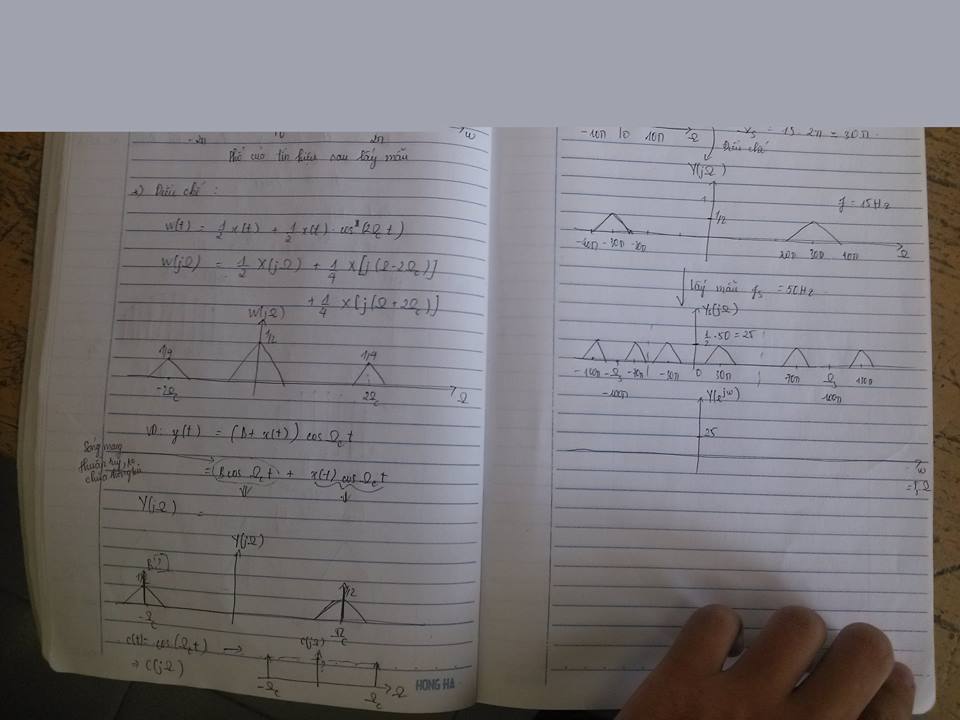 -2π 2π w
Phổ của tín hiệu sau lấy mẫu
Điều chế :
w(t) = 1/2 x(t) + 1/2 x(t) . cos (2Ωc t)
W(jΩ) = 1/2 X(jΩ) + 1/4 X[j(Ω-2Ωc)]
+ 1/4 X[j(Ω+2Ωc)]
W(jΩ)
1/2
1/4 1/4
-2Ωc 2Ωc Ω
VD: y(t) = (A+ x(t)) cos Ωc t
Sóng mang
= (A cos Ωc t + x(t) cos Ωc t
Y(jΩ) =
Y(jΩ)
1/2
-Ωc Ωc
c(t)= cos(Ωc t) → C(jΩ)
⇒ C(jΩ)
-Ωc -Ωc Ω
HONG HA
-10π 0 10π Ω = 15. 2π = 30π.
Điều chế
Y(jΩ)
1
1/2
f = 15Hz
-40π -30π -20π 20π 30π 40π Ω
lấy mẫu fs = 50Hz
Ys(jΩ)
1/2 . 50 = 25
-Ωs -70π -30π 0 30π 70π Ωs
-100π 100π
Y(e^jw)
25
w